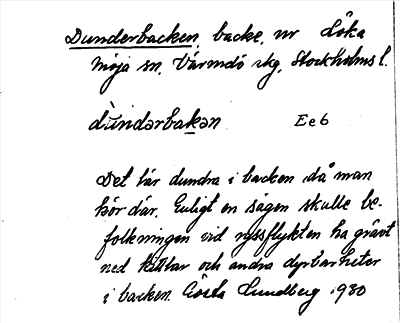 Dunderbacken, backe, nr Löka
Möja sn, Värmdö skg, Stockholms l.
dùndərbakən Ee6
Det lär dundra i backen då man
kör där. Enligt en sägen skulle be-
folkningen vid ryssflykten ha grävt
ned kittlar och andra dyrbarheter
i backen. Gösta Lundberg 1980